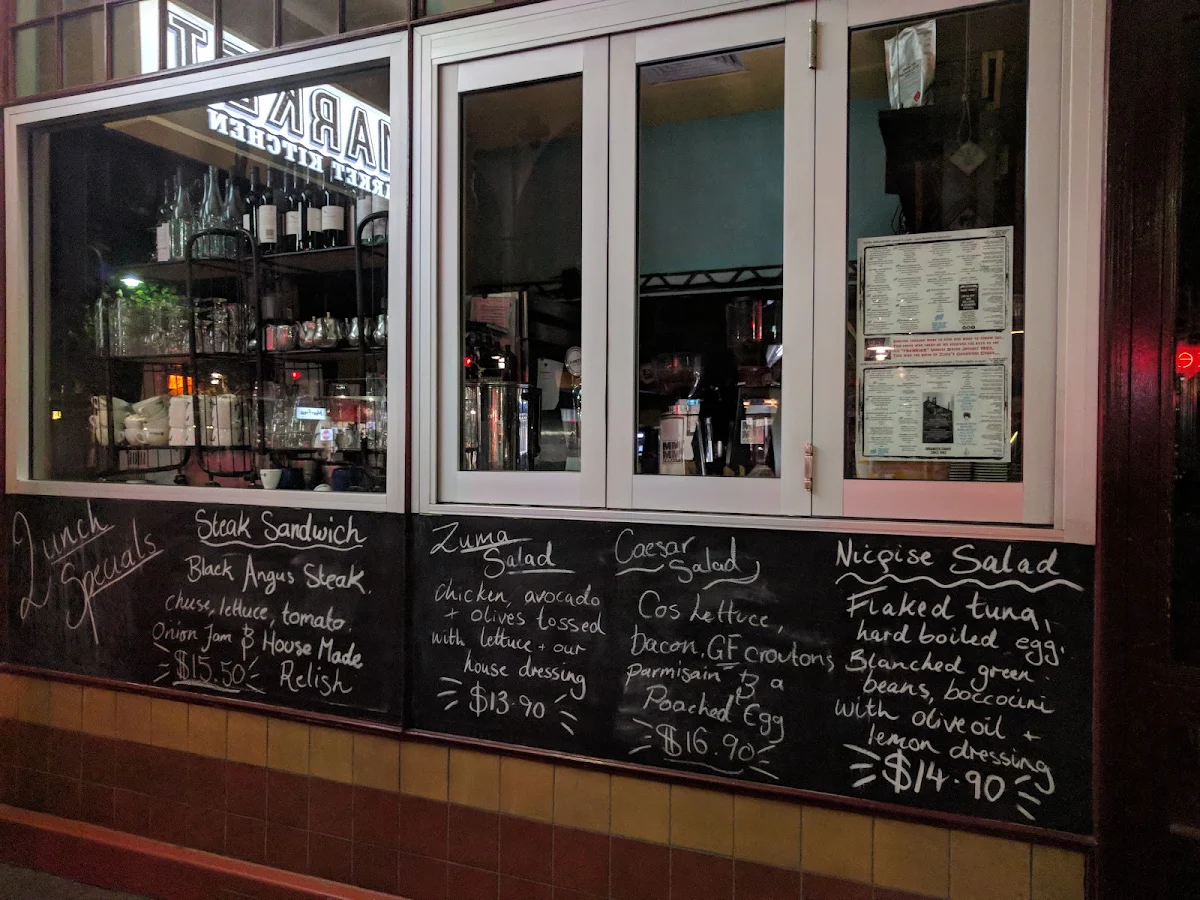 MARKET
MARKET KITCHEN
Lunch
Specials
Steak Sandwich
Black Angus Steak.
cheese, lettuce, tomato.
Onion Jam & House Made
Relish
$15.50
Zuma
Salad
chicken, avocado
+ olives tossed
with lettuce + our
house dressing
$13.90
Caesar
Salad
Cos Lettuce,
bacon, GF croutons
parmisain & a
Poached Egg
$16.90
Niçoise Salad
Flaked tuna,
hard boiled egg,
Blanched green
beans, boccocini
with olive oil +
lemon dressing
$14.90